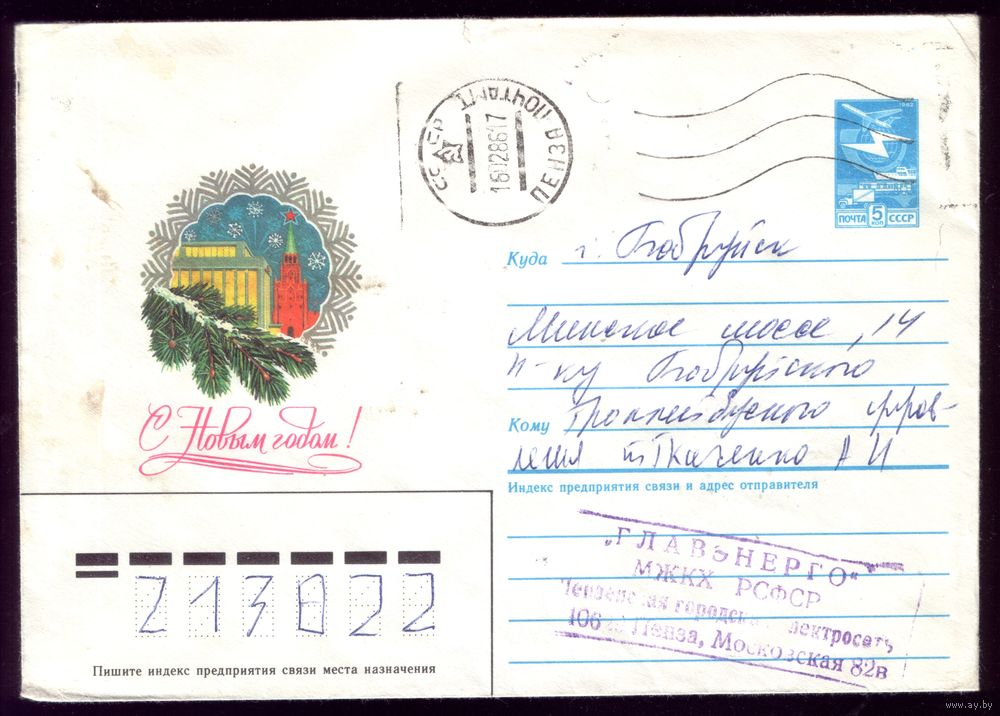 СССР ПЕНЗА ПОЧТАМТ
16 02 86 17
1982
ПОЧТА 5 КОП СССР
С Новым годом!
Куда г. Бобруйск
Минское шоссе, 14
н-ку Бобруйского
Кому Троллейбусного управ-
ления т Ткаченко А И
Индекс предприятия связи и адрес отправителя
„ГЛАВЭНЕРГО“
МЖКХ РСФСР
Пензенская городская электросеть
Пенза, Московская 82в
213022
Пишите индекс предприятия связи места назначения
www.ay.by